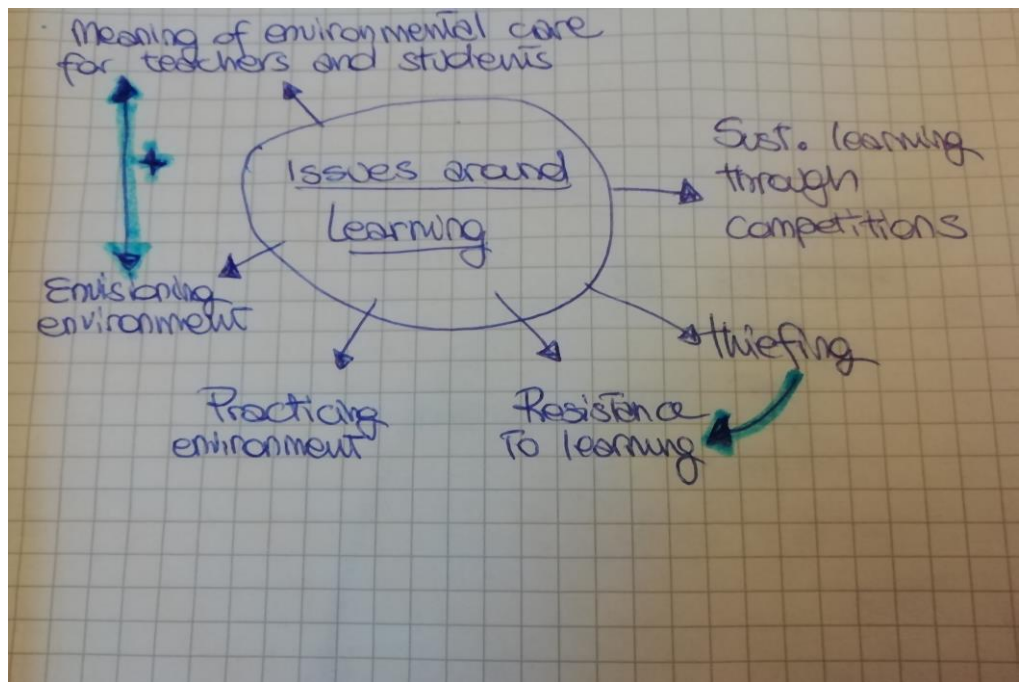 Meaning of environmental care
for teachers and students
+
Issues around
Learning
Sust. learning
through
competitions
Envisioning
environment
thiefing
Practicing
environment
Resistence
To learning